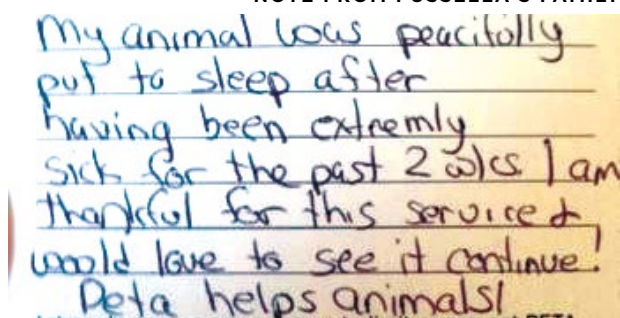 My animal was peacifully
put to sleep after
having been extremly
sick for the past 2 wks I am
thankful for this service &
would love to see it continue!
Peta helps animals!